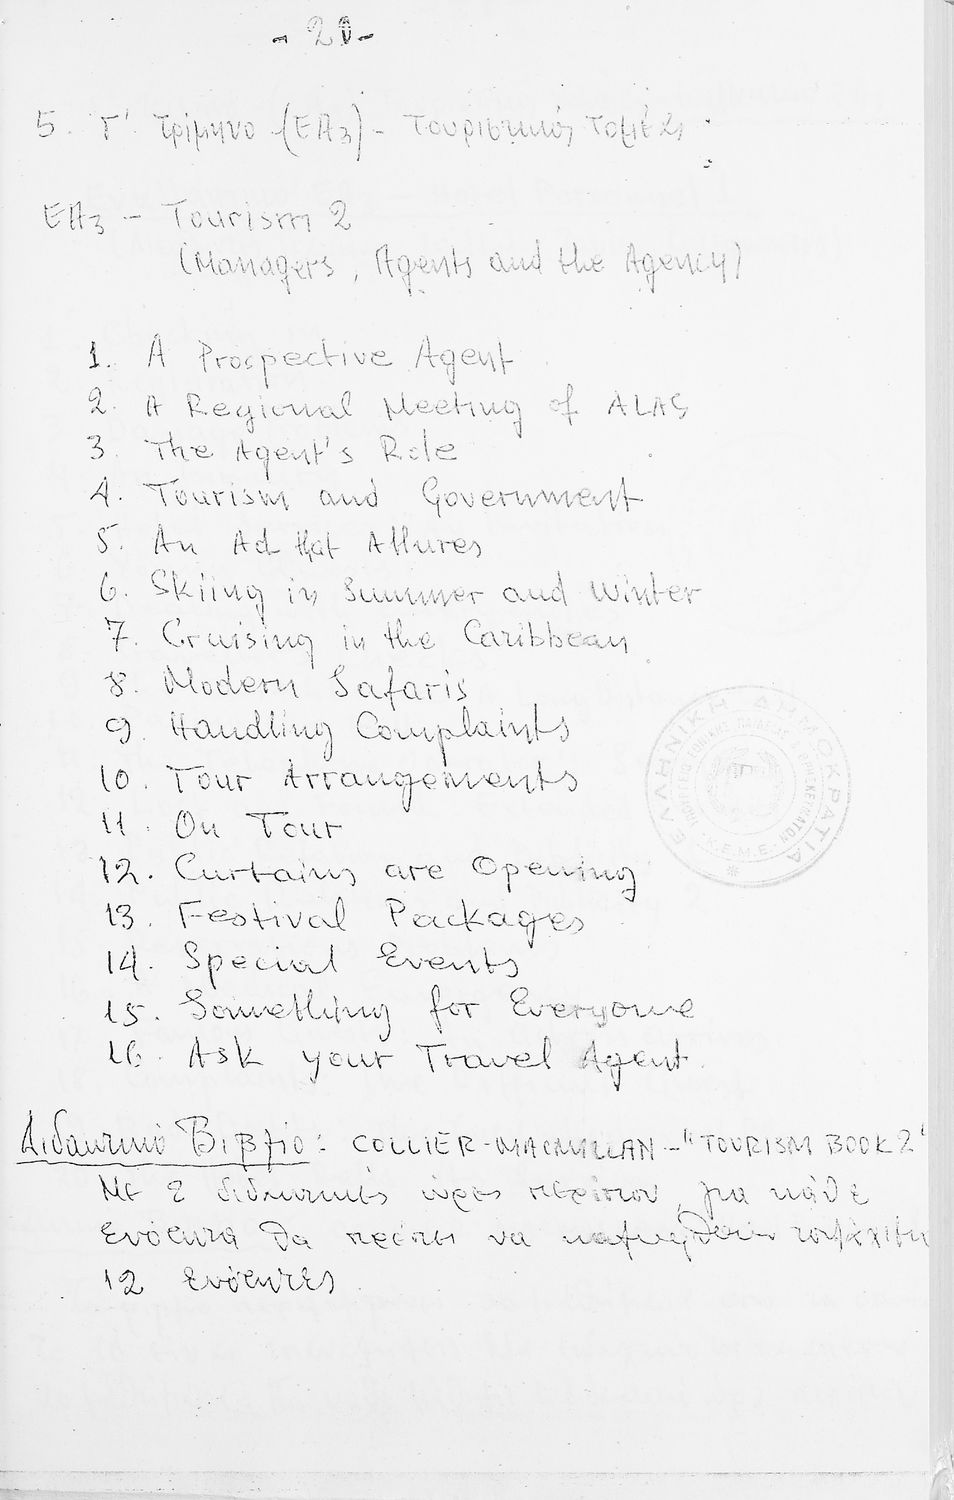 - 20 -
5. Γ' Τρίμηνο (ΕΑ3) - Τουριστικός Τομέας :
ΕΑ3 - Tourism 2
(Managers, Agents and the Agency)
1. A Prospective Agent
2. A Regional Meeting of ALAS
3. The Agent's Role
4. Tourism and Government
5. An Ad that Allures
6. Skiing in Summer and Winter
7. Cruising in the Caribbean
8. Modern Safaris
9. Handling Complaints
10. Tour Arrangements
11. On Tour
12. Curtains are Opening
13. Festival Packages
14. Special Events
15. Something for Everyone
16. Ask your Travel Agent
ΕΛΛΗΝΙΚΗ ΔΗΜΟΚΡΑΤΙΑ
Κ.Ε.Μ.Ε.
Διδακτικό Βιβλίο: COLLIER-MACMILLAN - "TOURISM BOOK 2"
Με 2 διδακτικές ώρες περίπου για κάθε
ενότητα θα πρέπει να καλυφθούν τουλάχιστον
12 ενότητες